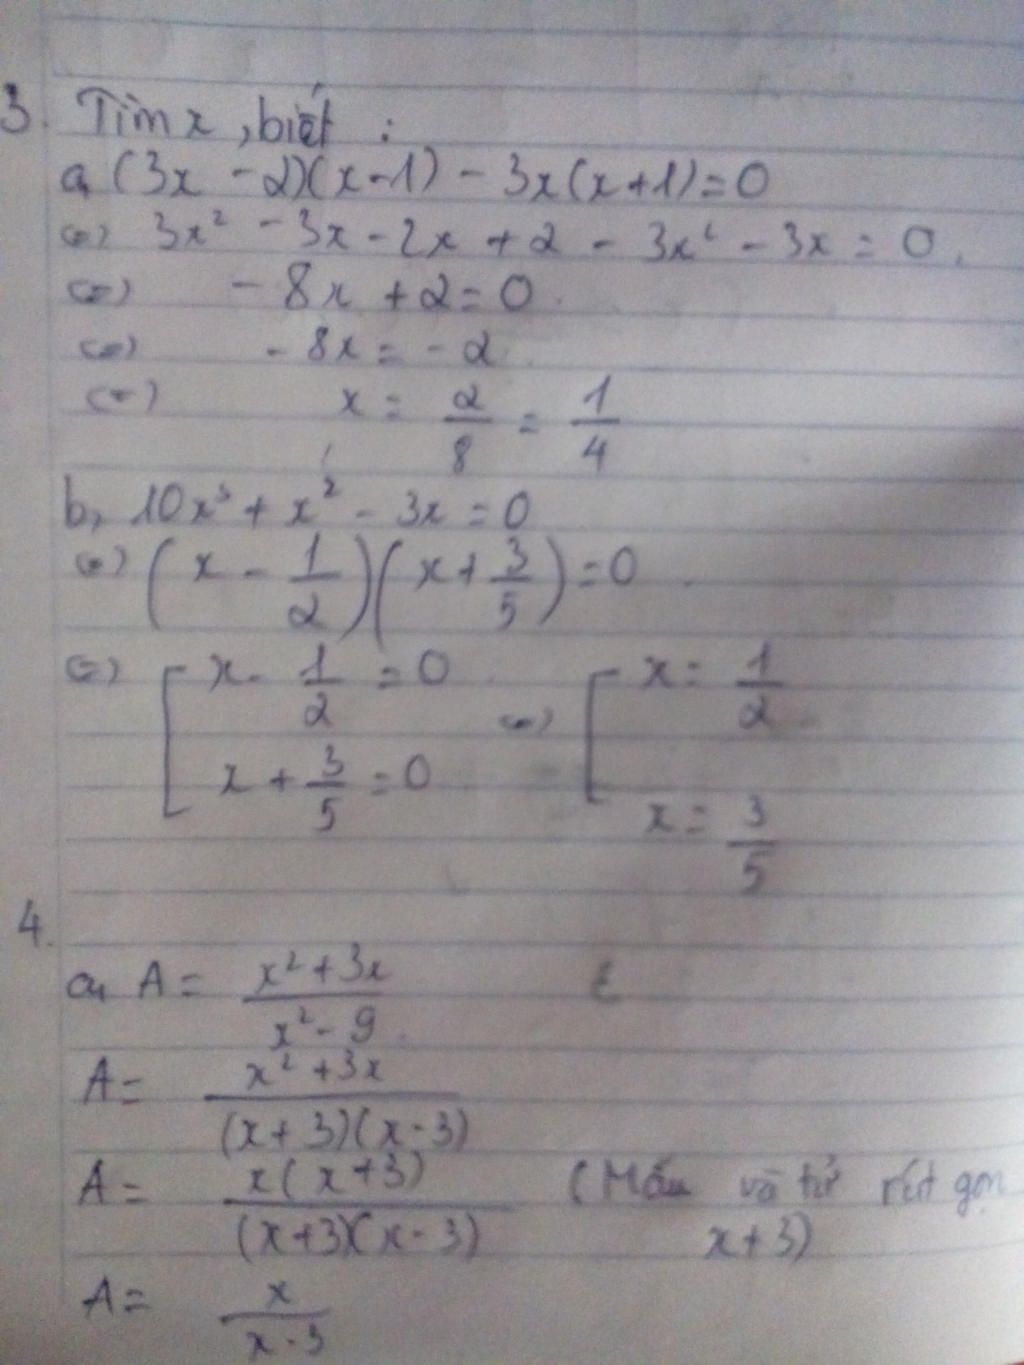 3. Tìm x, biết :
a, (3x - 2)(x - 1) - 3x(x + 1) = 0
(=) 3x² - 3x - 2x + 2 - 3x² - 3x = 0.
(=) - 8x + 2 = 0.
(=) - 8x = - 2
(=) x = 2/8 = 1/4
b, 10x³ + x² - 3x = 0
(=) (x - 1/2)(x + 3/5) = 0
(=) [ x - 1/2 = 0 (=) [ x = 1/2
x + 3/5 = 0 x = 3/5
4.
a, A = x² + 3x / x² - 9
A = x² + 3x / (x + 3)(x - 3)
A = x(x + 3) / (x + 3)(x - 3) (Mẫu và tử rút gọn
x + 3)
A = x / x - 3